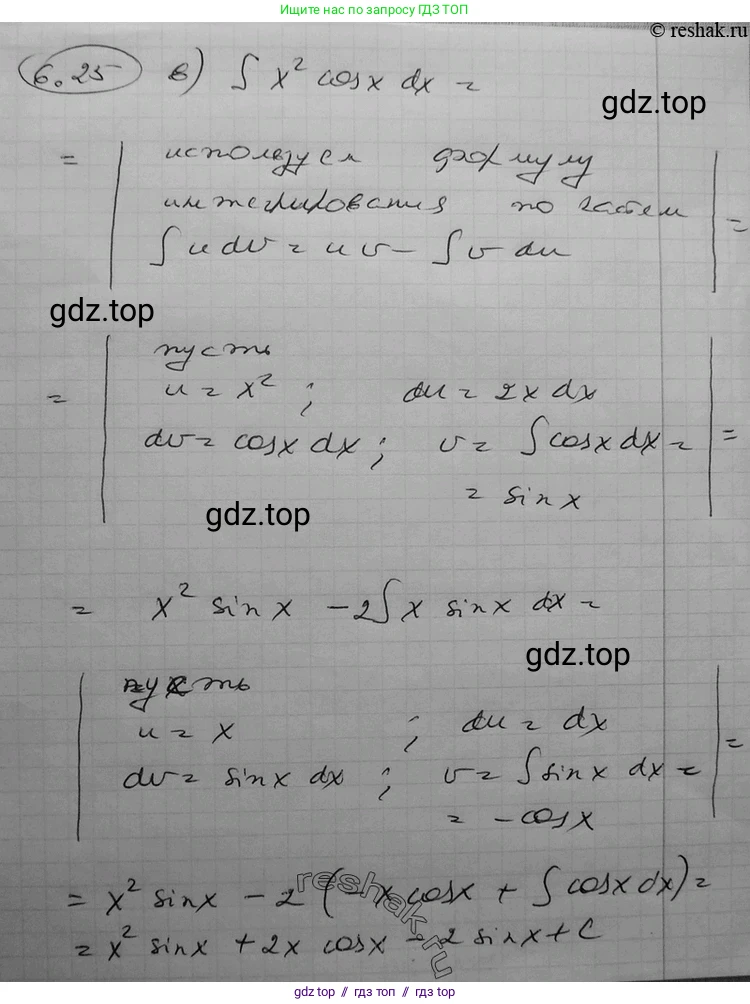 Ищите нас по запросу ГДЗ ТОП
© reshak.ru
6.25 в) ∫ x² cosx dx =
gdz.top
= | используем формулу
интегрирования по частям | =
∫ u dv = uv - ∫ v du
gdz.top
пусть
= | u = x² ; du = 2x dx
dv = cosx dx ; v = ∫ cosx dx = | =
= sinx
gdz.top
= x² sinx - 2∫ x sinx dx =
gdz.top
пусть
u = x ; du = dx
dv = sinx dx ; v = ∫ sinx dx = | =
= -cosx
= x² sinx - 2 (-x cosx + ∫ cosx dx) =
reshak.ru
= x² sinx + 2x cosx - 2 sinx + C
gdz.top // гдз топ // гдз.top